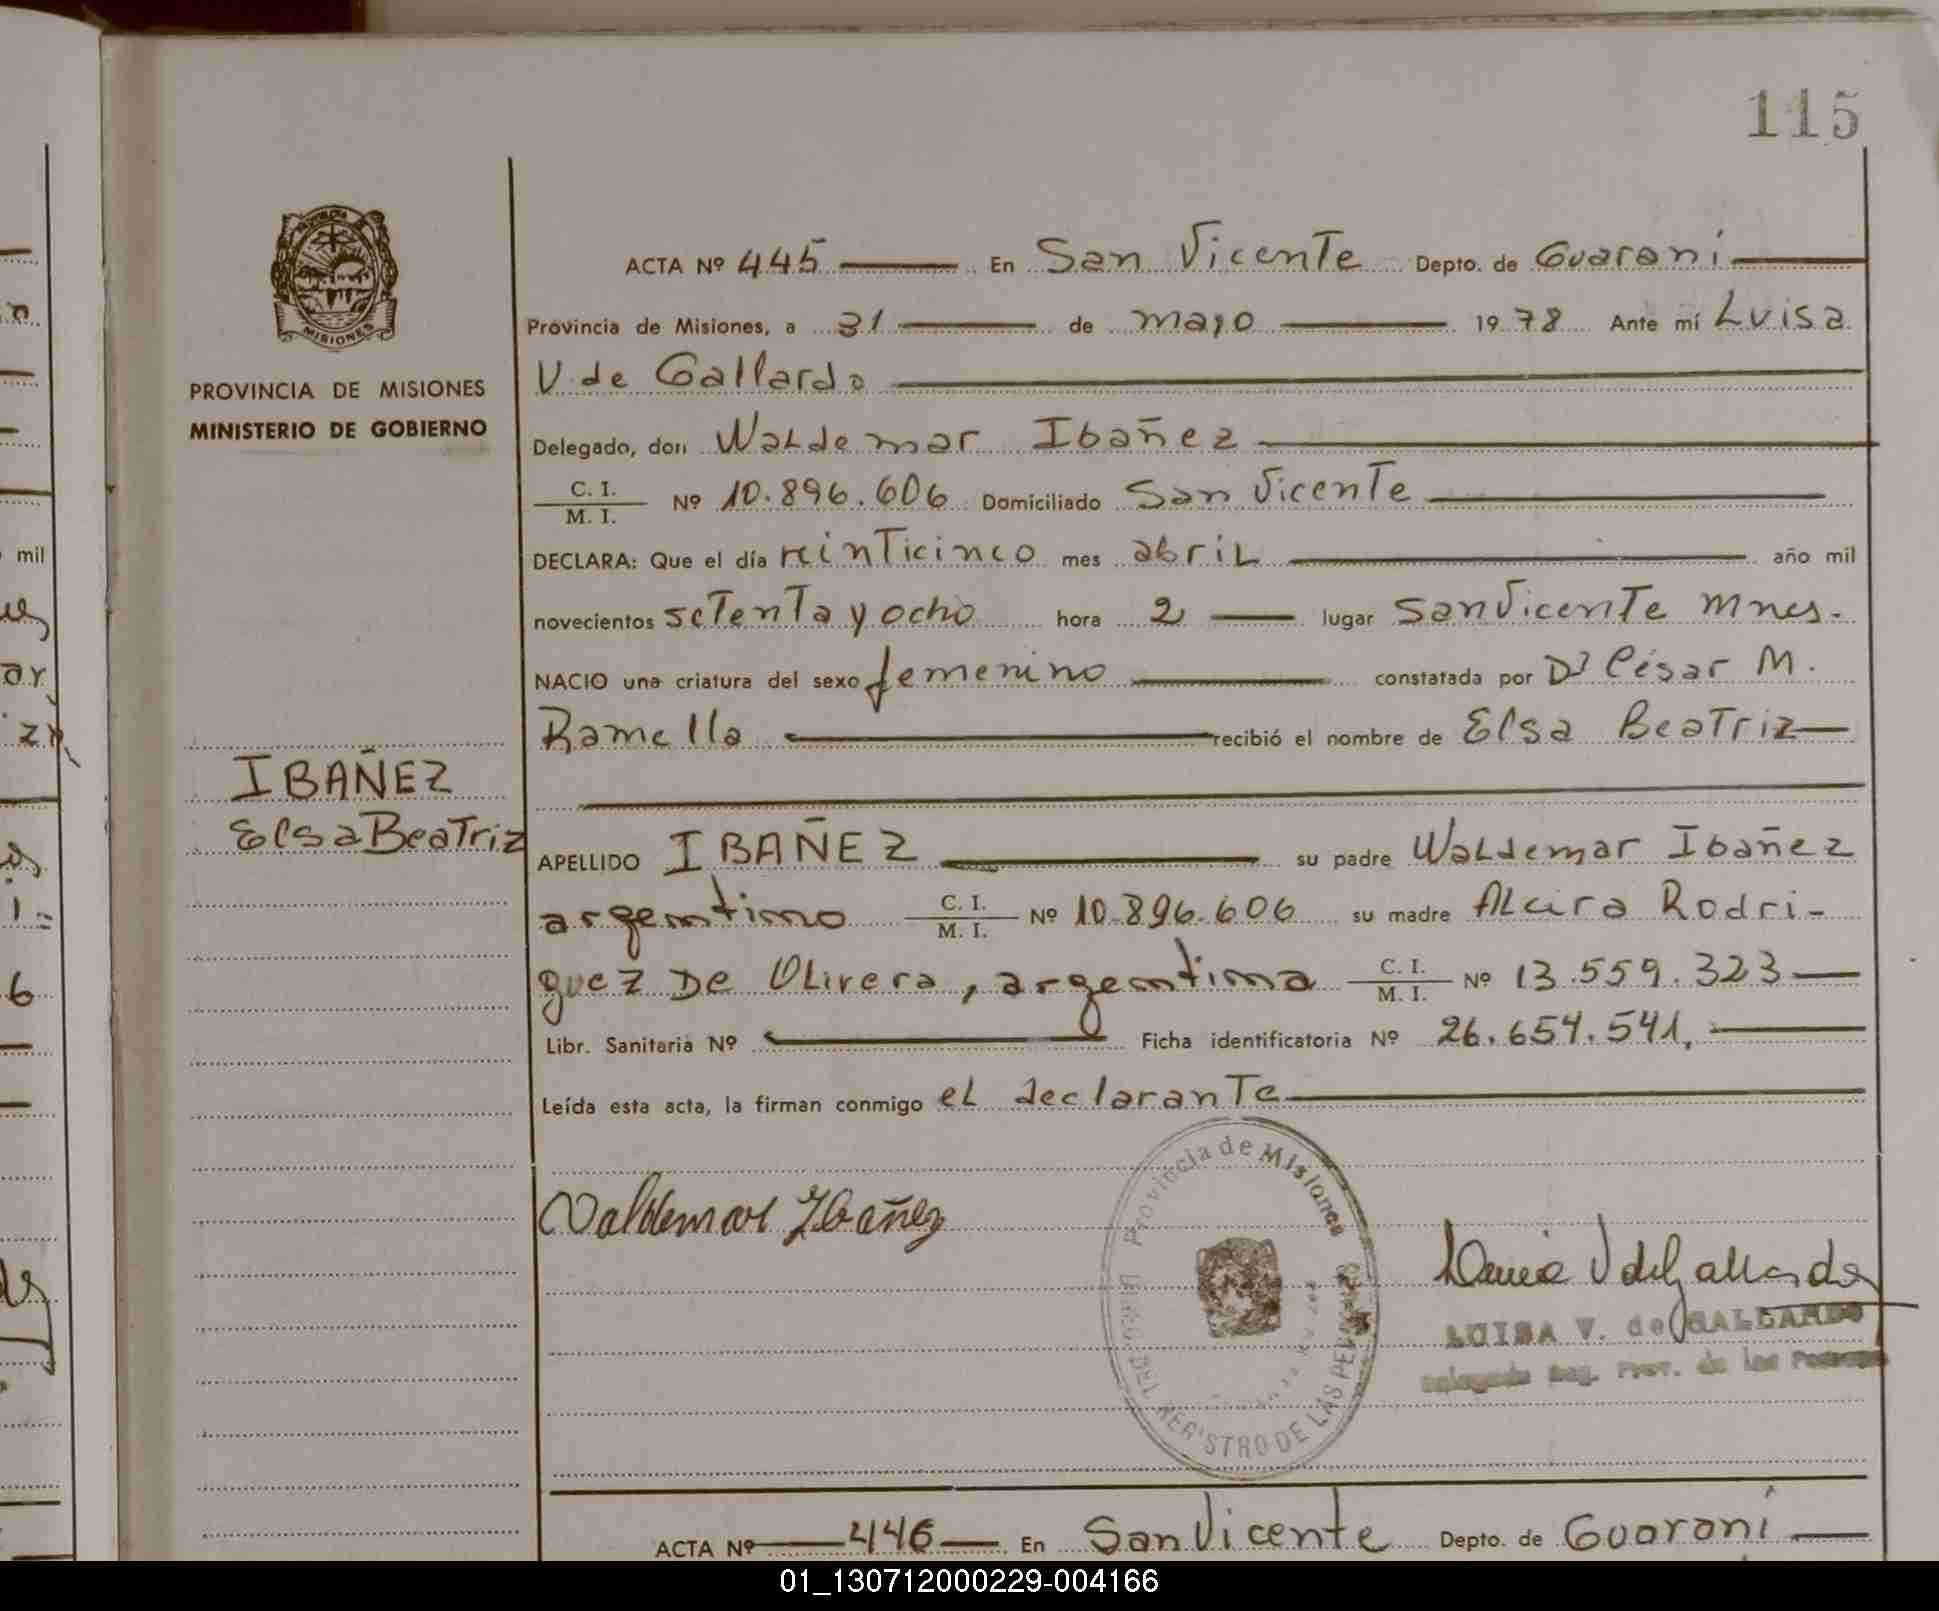 115
MISIONES
PROVINCIA DE MISIONES
MINISTERIO DE GOBIERNO
IBAÑEZ
Elsa Beatriz
ACTA Nº 445 En San Vicente Depto. de Guaraní
Provincia de Misiones, a 31 de mayo 1978 Ante mí Luisa
V. de Gallardo
Delegado, don Waldemar Ibañez
C. I.
M. I. Nº 10.896.606 Domiciliado San Vicente
DECLARA: Que el día veinticinco mes abril año mil
novecientos setenta y ocho hora 2 lugar San Vicente Mnes.
NACIO una criatura del sexo femenino constatada por Dr César M.
Ramella recibió el nombre de Elsa Beatriz
APELLIDO IBAÑEZ su padre Waldemar Ibañez
argentino C. I.
M. I. Nº 10.896.606 su madre Alcira Rodri-
guez De Olivera, argentina C. I.
M. I. Nº 13.559.323
Libr. Sanitaria Nº Ficha identificatoria Nº 26.654.541,
Leída esta acta, la firman conmigo el declarante
Valdemar Ibañez
Provincia de Misiones
DEL REGISTRO DE LAS PERSONAS
Luisa V de Gallardo
LUISA V. de GALLARDO
Delegada Reg. Prov. de las Personas
ACTA Nº 446 En San Vicente Depto. de Guaraní
mil
01_130712000229-004166